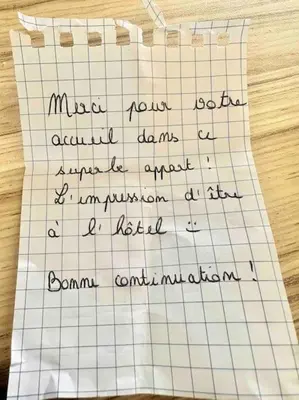 Merci pour votre
accueil dans ce
superbe appart !
L'impression d'être
à l'hôtel :)
Bonne continuation !